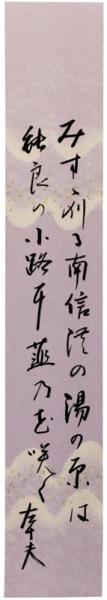 みすゞ刈る南信濃の湯の原は
能良の小路耳韮乃花咲く